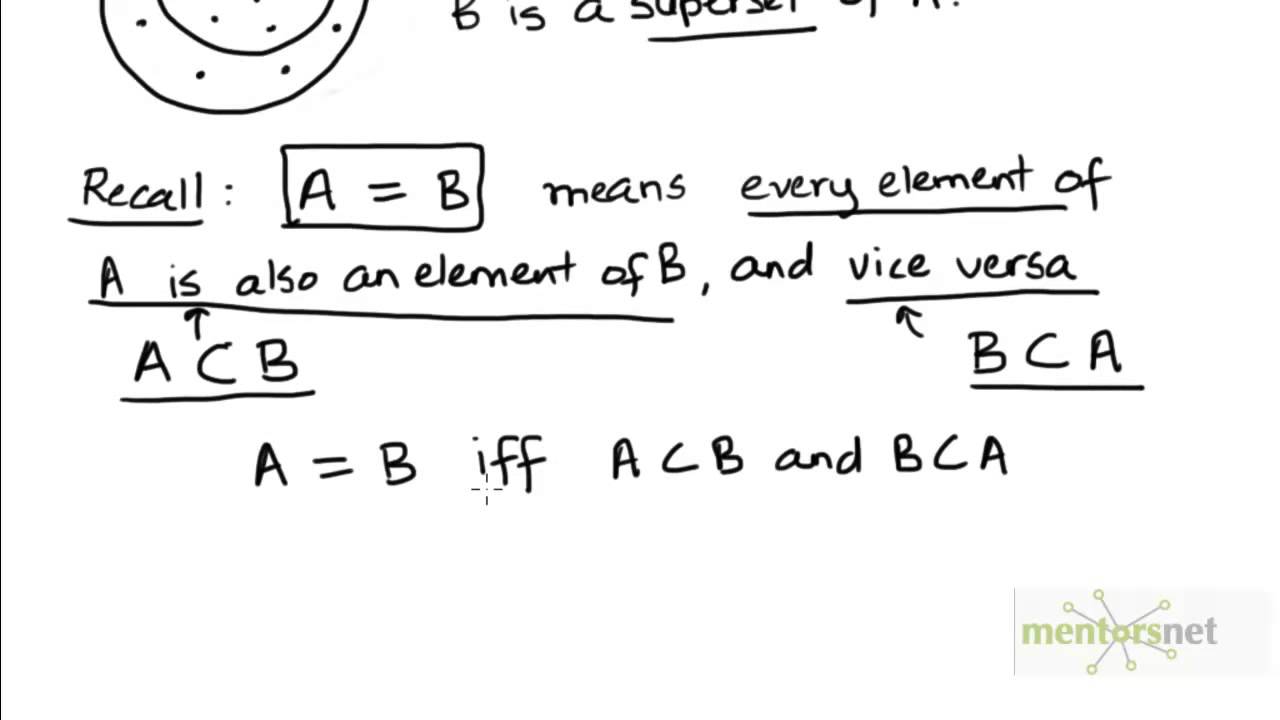 B is a superset of A.
Recall : A = B means every element of
A is also an element of B, and vice versa
A ⊂ B B ⊂ A
A = B iff A ⊂ B and B ⊂ A
mentorsnet